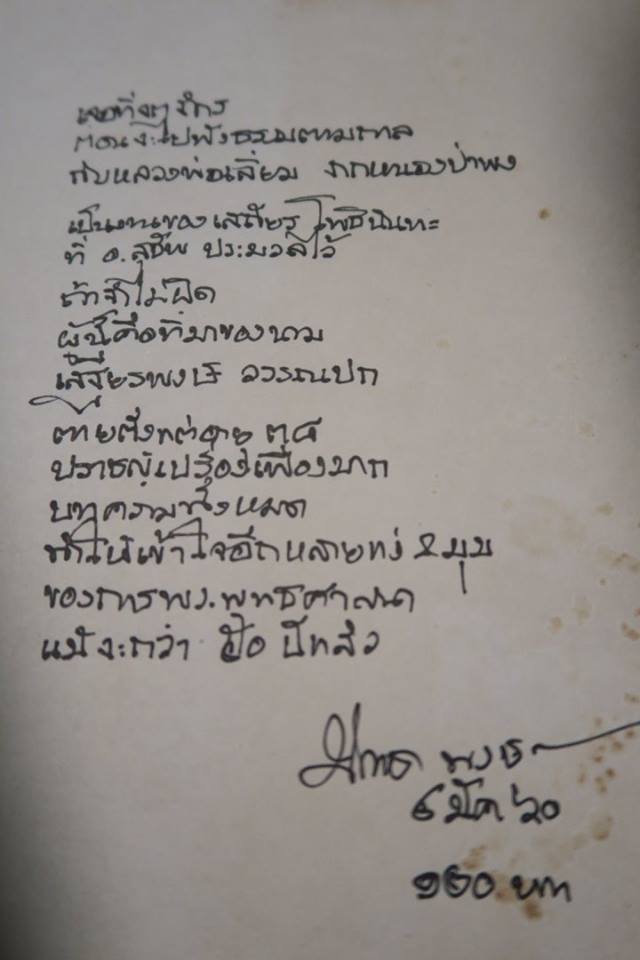 เจอที่จตุจักร
ตอนจะไปฟังธรรมตามกาล
กับหลวงพ่อเลี่ยม จากหนองป่าพง
เป็นงานของเสถียร โพธินันทะ
ที่ อ.สุชีพ ประมวลไว้
ถ้าจำไม่ผิด
ผู้นี้คือที่มาของนาม
เสฐียรพงษ์ วรรณปก
ตายตั้งแต่อายุ ๓๘
ปราชญ์เปรื่องเฟื่องมาก
บทความทั้งหมด
ทำให้เข้าใจอีกหลายแง่ & มุม
ของการพระพุทธศาสนา
แม้จะกว่า ปีแล้ว
พงษ์
๖๐
๑๒๐ บาท